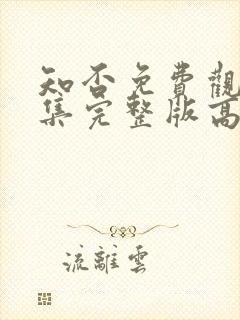 知否免費觀
集完整版高
流離雲